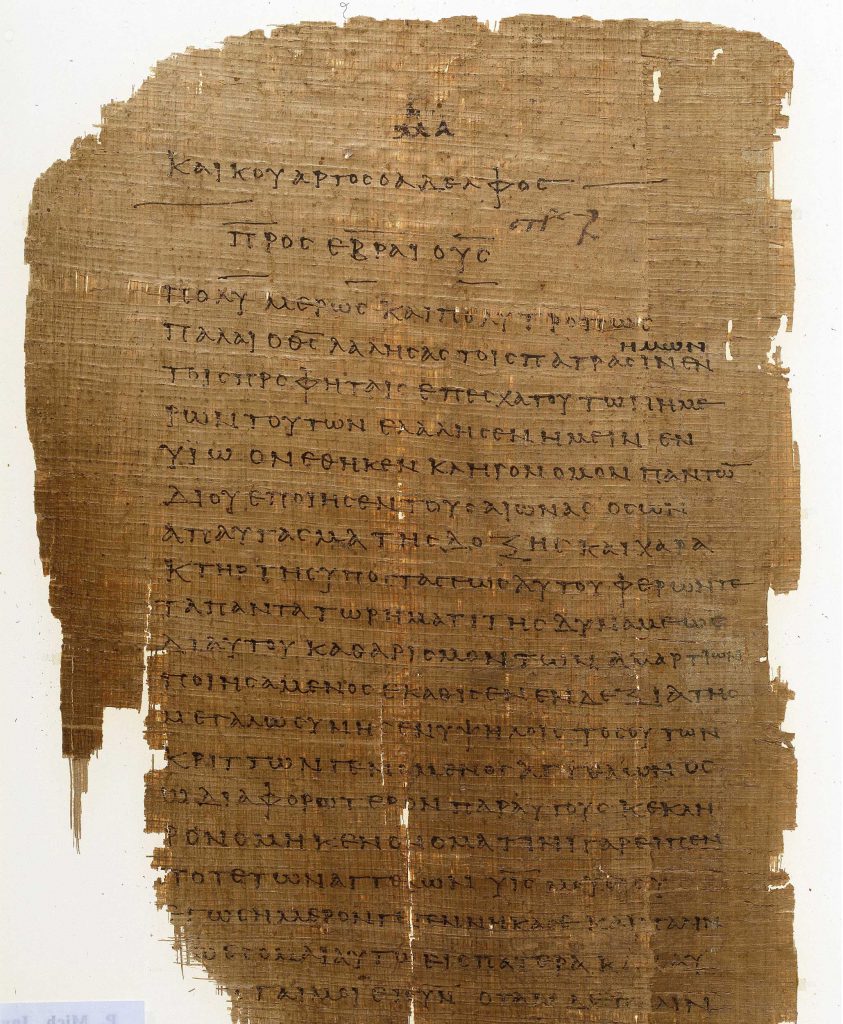 ΜΑ
ΚΑΙ ΚΟΥΑΡΤΟΣ Ο ΑΔΕΛΦΟΣ
ΠΡΟΣ ΕΒΡΑΙΟΥΣ
ΠΟΛΥΜΕΡΩΣ ΚΑΙ ΠΟΛΥΤΡΟΠΩΣ
ΠΑΛΑΙ Ο Θ̅Σ̅ ΛΑΛΗΣΑΣ ΤΟΙΣ ΠΑΤΡΑΣΙΝ ΗΜΩΝ ΕΝ
ΤΟΙΣ ΠΡΟΦΗΤΑΙΣ ΕΠ ΕΣΧΑΤΟΥ ΤΩΝ ΗΜΕ
ΡΩΝ ΤΟΥΤΩΝ ΕΛΑΛΗΣΕΝ ΗΜΕΙΝ ΕΝ
ΥΙΩ ΟΝ ΕΘΗΚΕΝ ΚΛΗΡΟΝΟΜΟΝ ΠΑΝΤΩ̅
ΔΙ ΟΥ ΕΠΟΙΗΣΕΝ ΤΟΥΣ ΑΙΩΝΑΣ ΟΣ ΩΝ
ΑΠΑΥΓΑΣΜΑ ΤΗΣ ΔΟΞΗΣ ΚΑΙ ΧΑΡΑ
ΚΤΗΡ ΤΗΣ ΥΠΟΣΤΑΣΕΩΣ ΑΥΤΟΥ ΦΕΡΩΝ ΤΕ
ΤΑ ΠΑΝΤΑ ΤΩ ΡΗΜΑΤΙ ΤΗΣ ΔΥΝΑΜΕΩΣ
ΔΙ ΑΥΤΟΥ ΚΑΘΑΡΙΣΜΟΝ ΤΩΝ ΑΜΑΡΤΙΩΝ
ΠΟΙΗΣΑΜΕΝΟΣ ΕΚΑΘΙΣΕΝ ΕΝ ΔΕΞΙΑ ΤΗΣ
ΜΕΓΑΛΩΣΥΝΗΣ ΕΝ ΥΨΗΛΟΙΣ ΤΟΣΟΥΤΩΝ
ΚΡΙΤΤΩΝ ΓΕΝΟΜΕΝΟΣ ΑΓΓΕΛΩΝ ΟΣ
Ω ΔΙΑΦΟΡΩΤΕΡΟΝ ΠΑΡ ΑΥΤΟΥΣ ΚΕΚΛΗ
ΡΟΝΟΜΗΚΕΝ ΟΝΟΜΑ ΤΙΝΙ ΓΑΡ ΕΙΠΕΝ
ΠΟΤΕ ΤΩΝ ΑΓΓΕΛΩΝ Υ̅Ι̅Σ̅ ΜΟΥ
ΕΓΩ ΣΗΜΕΡΟΝ ΓΕΓΕΝΝΗΚΑ ΣΕ ΚΑΙ ΠΑΛΙΝ
ΕΣΟΜΑΙ ΑΥΤΩ ΕΙΣ ΠΑΤΕΡΑ ΚΑΙ ΑΥ
ΕΙΣ ΥΝ ΟΤΑΝ ΔΕ ΠΑΛΙΝ